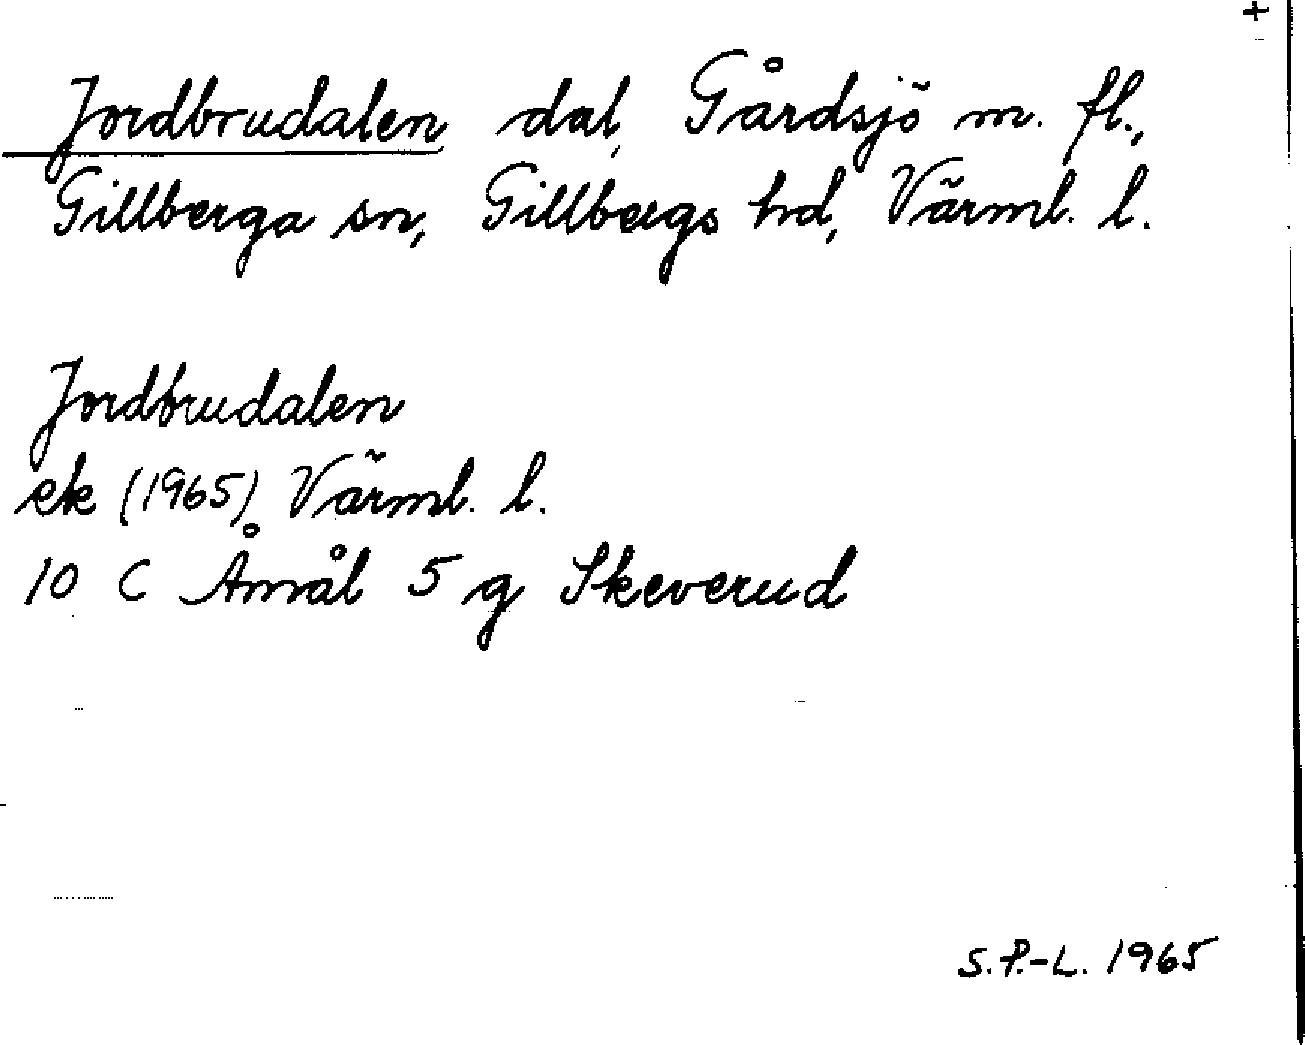 +
Jordbrudalen dal, Gårdsjö m. fl.,
Gillberga sn, Gillbergs hd, Värml. l.
Jordbrudalen
ek (1965), Värml. l.
10 C Åmål 5 g Skeverud
S.P.-L. 1965